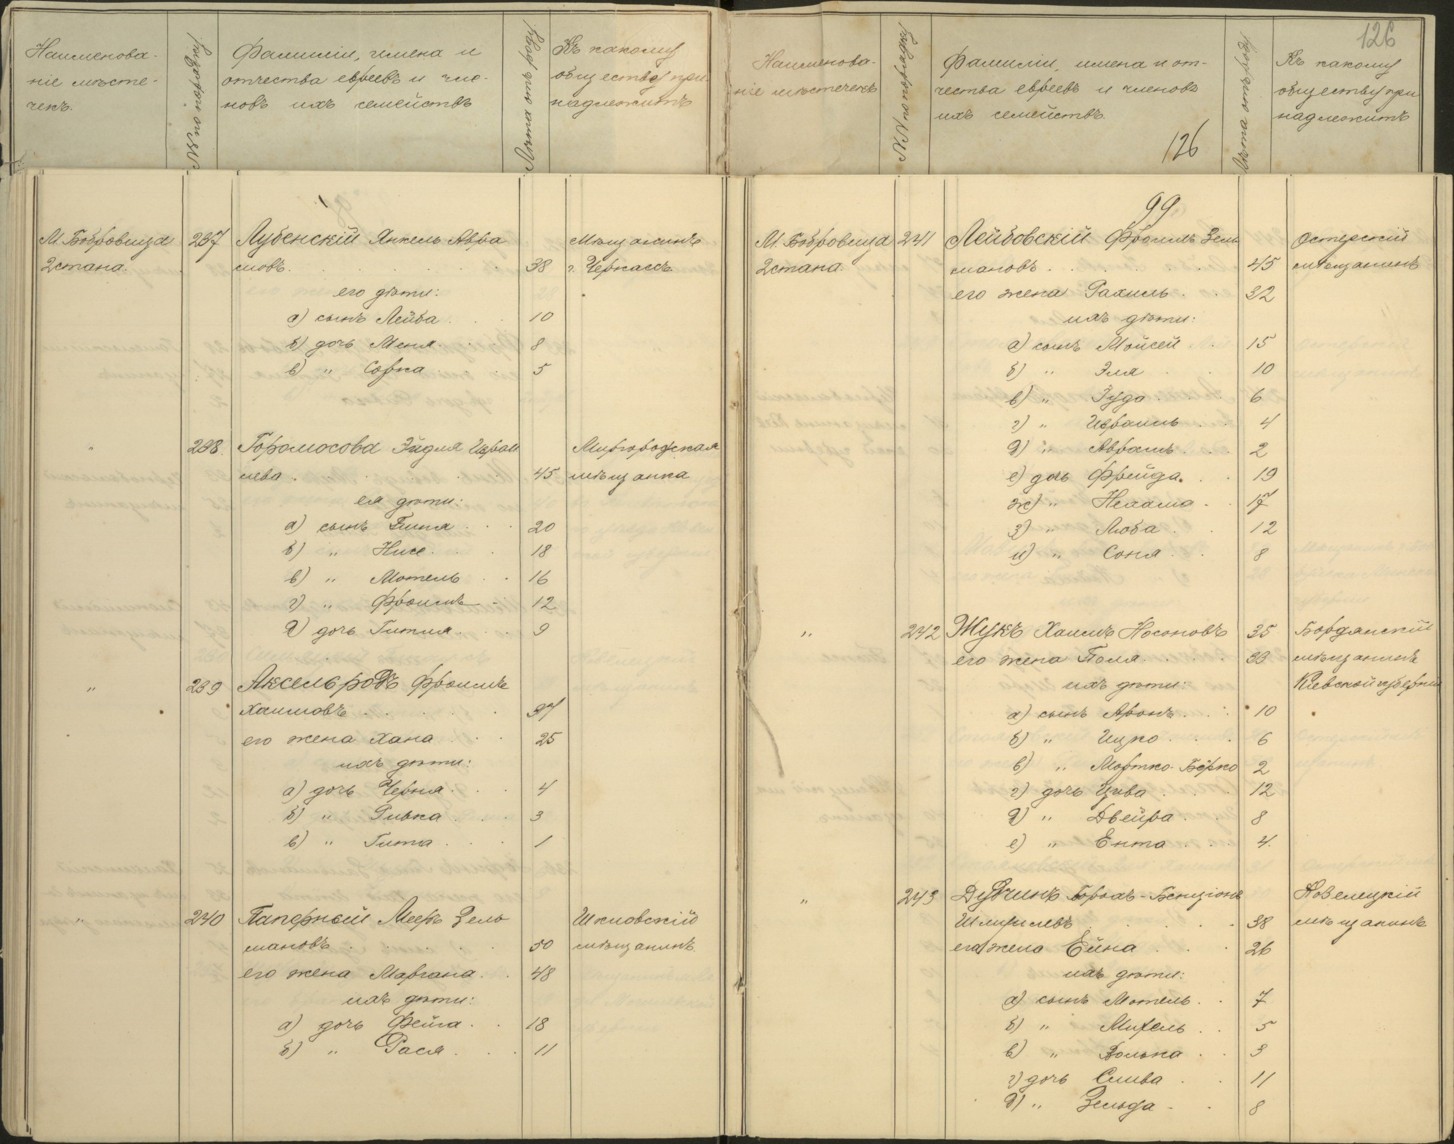 Наименова-
ніе мѣсте-
чекъ.
№№ по порядку
Фамиліи, имена и
отчества евреевъ и чле-
новъ ихъ семействъ
Лѣта отъ роду
Къ какому
обществу при
надлежитъ
М. Бобровица
2 стана.
237
Лубенскій Янкель Абра
мовъ.
38
Мѣщанинъ
г. Черкассъ
его дѣти:
а) сынъ Лейба 10
б) дочь Меня 8
в) " Сорка 5
"
238
Горомосова Эйдля Израи
лева.
45
Миргородская
мѣщанка
ея дѣти:
а) сынъ Зиша 20
б) " Нисе 18
в) " Мотель 16
г) " Фроимъ 12
д) дочь Гитля 9
"
239
Аксельродъ Фроимъ
Хаимовъ 37
его жена Хана 25
ихъ дѣти:
а) дочь Черня 4
б) " Ривка 3
в) " Гита 1
"
240
Паперный Мееръ Зель
мановъ 50
Шкловскій
мѣщанинъ
его жена Маргана 48
ихъ дѣти:
а) дочь Фейга 18
б) " Рася 11
126
Наименова-
ніе мѣстечекъ
№№ по порядку
Фамиліи, имена и от-
чества евреевъ и членовъ
ихъ семействъ.
126
Лѣта отъ роду
Къ какому
обществу при
надлежитъ
99
М. Бобровица
2 стана
241
Лейбовскій Фроимъ Зель
мановъ 45
Остерскій
мѣщанинъ
его жена Рахиль 32
ихъ дѣти:
а) сынъ Мойсей 15
б) " Эля 10
в) " Іуда 6
г) " Израиль 4
д) " Абрамъ 2
е) дочь Фрейда 19
ж) " Нехама 17
з) " Люба 12
и) " Соня 8
"
242
Жукъ Хаимъ Носоновъ 35
Бордянскій
его жена Поля 33
мѣщанинъ
ихъ дѣти:
Кіевской губерніи
а) сынъ Аронъ 10
б) " Ицко 6
в) " Мортко-Берко 2
г) дочь Цива 12
д) " Двейра 8
е) " Ента 4.
"
243
Дувчинъ Борохъ-Бенціонъ
Шмуилевъ 38
Новелецкій
мѣщанинъ
его жена Ейна 26
ихъ дѣти:
а) сынъ Мотель 7
б) " Михель 5
в) " Волька 3
г) дочь Слива 11
д) " Зельда 8